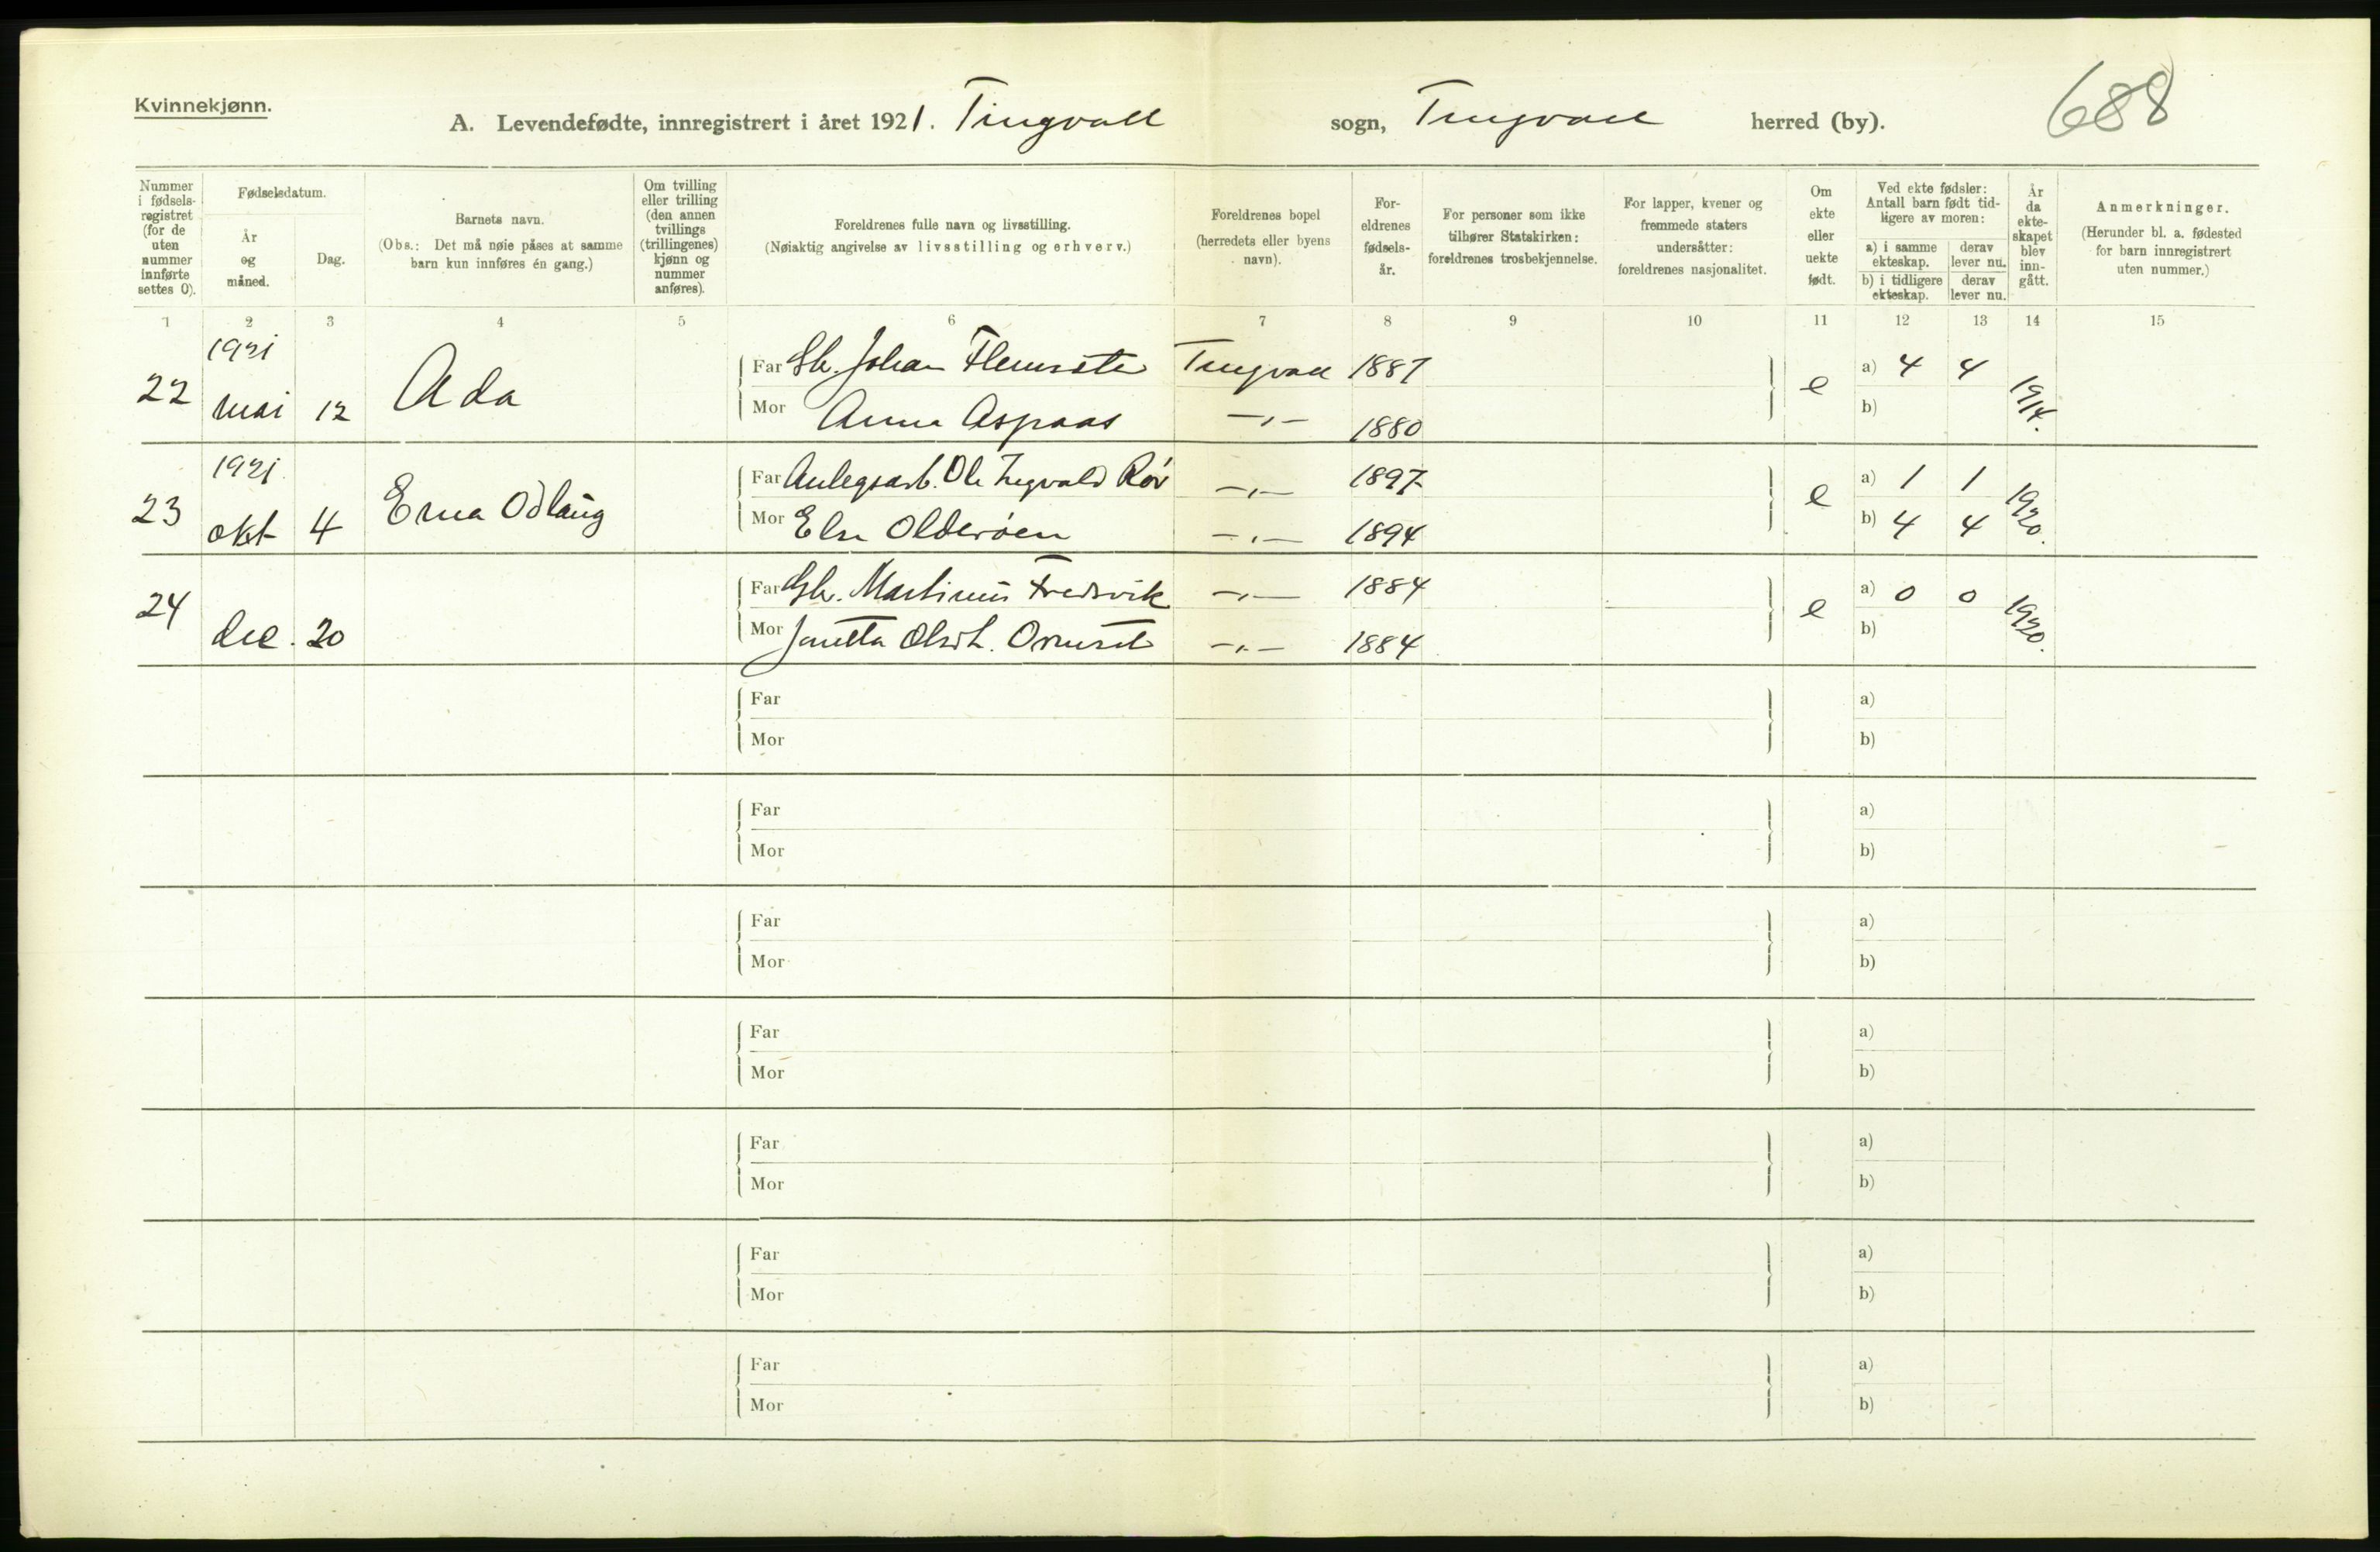 Kvinnekjønn.
A. Levendefødte, innregistrert i året 1921. Tingvoll sogn, Tingvoll herred (by).
688
Nummer i fødsels-registret (for de uten nummer innførte settes 0).
Fødselsdatum.
År og måned.
Dag.
Barnets navn.
(Obs.: Det må nøie påses at samme barn kun innføres én gang.)
Om tvilling eller trilling (den annen tvillings (trillingenes) kjønn og nummer anføres).
Foreldrenes fulle navn og livsstilling.
(Nøiaktig angivelse av livsstilling og erhverv.)
Foreldrenes bopel (herredets eller byens navn).
For-eldrenes fødsels-år.
For personer som ikke tilhører Statskirken: foreldrenes trosbekjennelse.
For lapper, kvener og fremmede staters undersåtter: foreldrenes nasjonalitet.
Om ekte eller uekte født.
Ved ekte fødsler: Antall barn født tid-ligere av moren:
a) i samme ekteskap.
derav lever nu.
b) i tidligere ekteskap.
derav lever nu.
År da ekte-skapet blev inn-gått.
Anmerkninger.
(Herunder bl. a. fødested for barn innregistrert uten nummer.)
1 2 3 4 5 6 7 8 9 10 11 12 13 14 15
22 1921 mai 12 Ada
Far Gbr. Johan Flemsæter Tingvoll 1887 e a) 4 4 1914.
Mor Anna Aspaas —„— 1880 b)
23 1921 okt 4 Erna Odlaug
Far Anlegsarb. Ole Ingvald Röv —„— 1897 e a) 1 1 1920.
Mor Else Olderöen —„— 1894 b) 4 4
24 dec. 20
Far Gbr. Martinus Fredsvik —„— 1884 e a) 0 0 1920.
Mor Olsd. —„— 1884 b)
Far a)
Mor b)
Far a)
Mor b)
Far a)
Mor b)
Far a)
Mor b)
Far a)
Mor b)
Far a)
Mor b)
Far a)
Mor b)